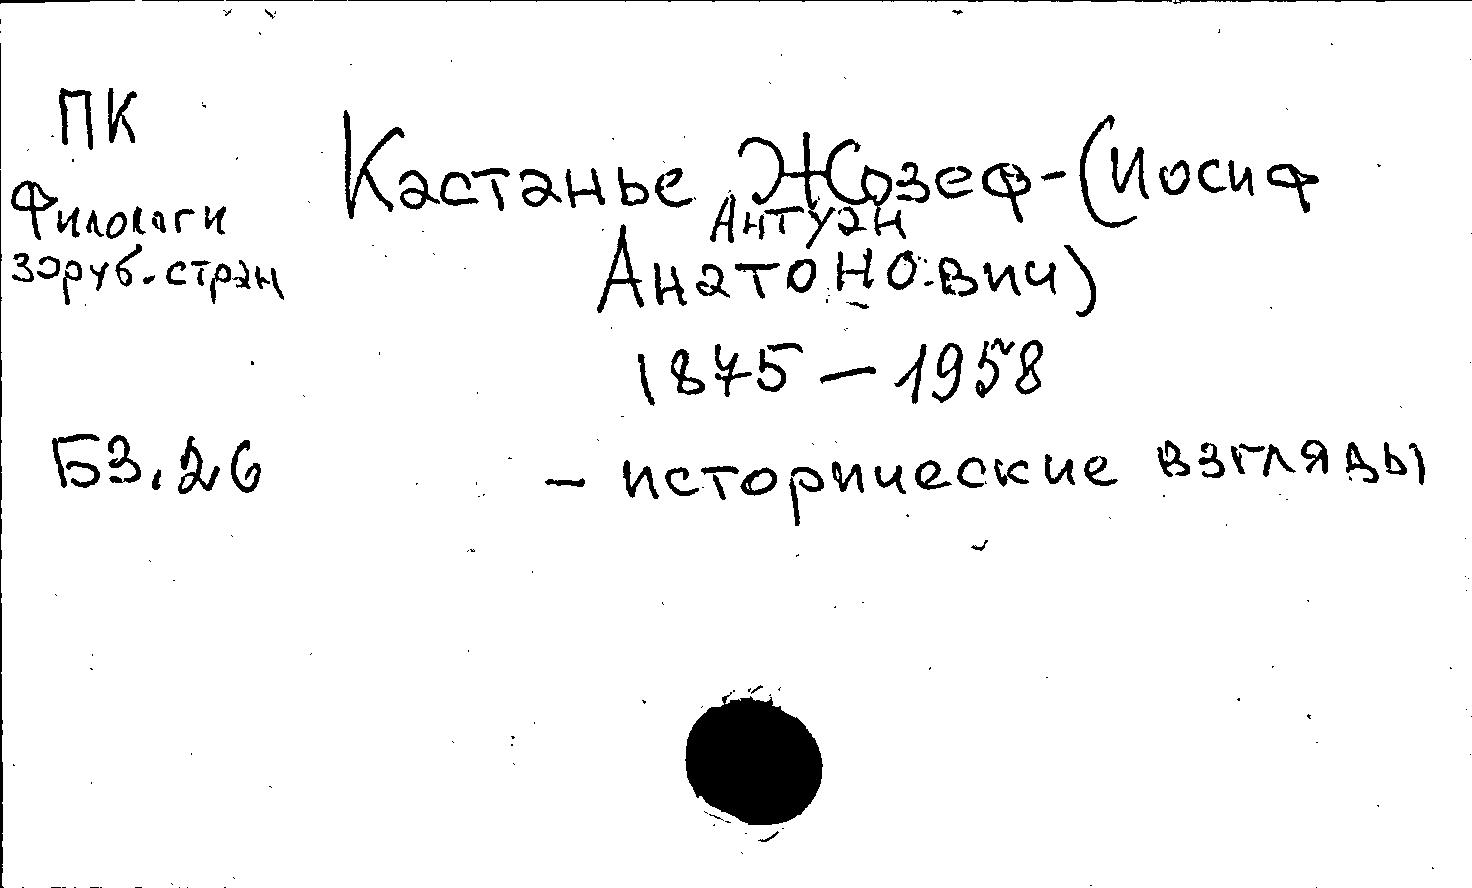 ПК
Кастанье Жозеф-(Иосиф
Филологи
Антуан
заруб.стран
Анатонович)
1875 – 1958
Б3.26
– исторические взгляды